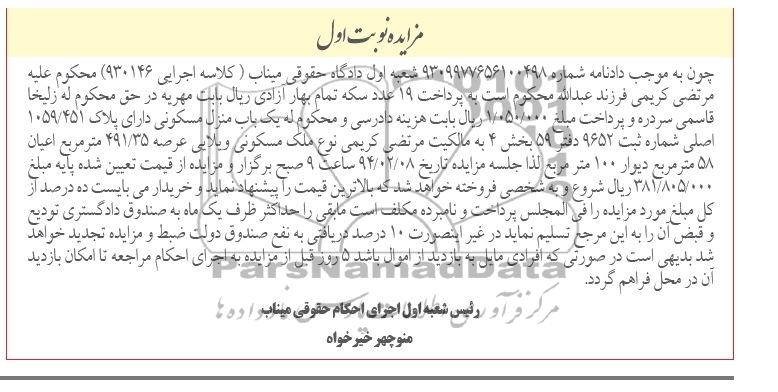 مزایده نوبت اول
چون به موجب دادنامه شماره ۹۳۰۹۹۷۷۶۵۶۱۰۰۴۹۸ شعبه اول دادگاه حقوقی میناب ( کلاسه اجرایی ۹۳۰۱۴۶) محکوم علیه
مرتضی کریمی فرزند عبدالله محکوم است به پرداخت ۱۹ عدد سکه تمام بهار آزادی ریال بابت مهریه در حق محکوم له زلیخا
قاسمی سردره و پرداخت مبلغ ۱/۰۵۰/۰۰۰ ریال بابت هزینه دادرسی و محکوم له یک باب منزل مسکونی دارای پلاک ۱۰۵۹/۴۵۱
اصلی شماره ثبت ۹۶۵۲ دفتر ۵۹ بخش ۴ به مالکیت مرتضی کریمی نوع ملک مسکونی ویلایی عرصه ۴۹۱/۳۵ مترمربع اعیان
۵۸ مترمربع دیوار ۱۰۰ متر مربع لذا جلسه مزایده تاریخ ۹۴/۰۲/۰۸ ساعت ۹ صبح برگزار و مزایده از قیمت تعیین شده پایه مبلغ
۳۸۱/۸۰۵/۰۰۰ ریال شروع و به شخصی فروخته خواهد شد که بالاترین قیمت را پیشنهاد نماید و خریدار می بایست ده درصد از
کل مبلغ مورد مزایده را فی المجلس پرداخت و نامبرده مکلف است مابقی را حداکثر ظرف یک ماه به صندوق دادگستری تودیع
و قبض آن را به این مرجع تسلیم نماید در غیر اینصورت ۱۰ درصد دریافتی به نفع صندوق دولت ضبط و مزایده تجدید خواهد
شد بدیهی است در صورتی که افرادی مایل به بازدید از اموال باشد ۵ روز قبل از مزایده به اجرای احکام مراجعه تا امکان بازدید
آن در محل فراهم گردد.
ParsNamadData
رئیس شعبه اول اجرای احکام حقوقی میناب
منوچهر خیرخواه